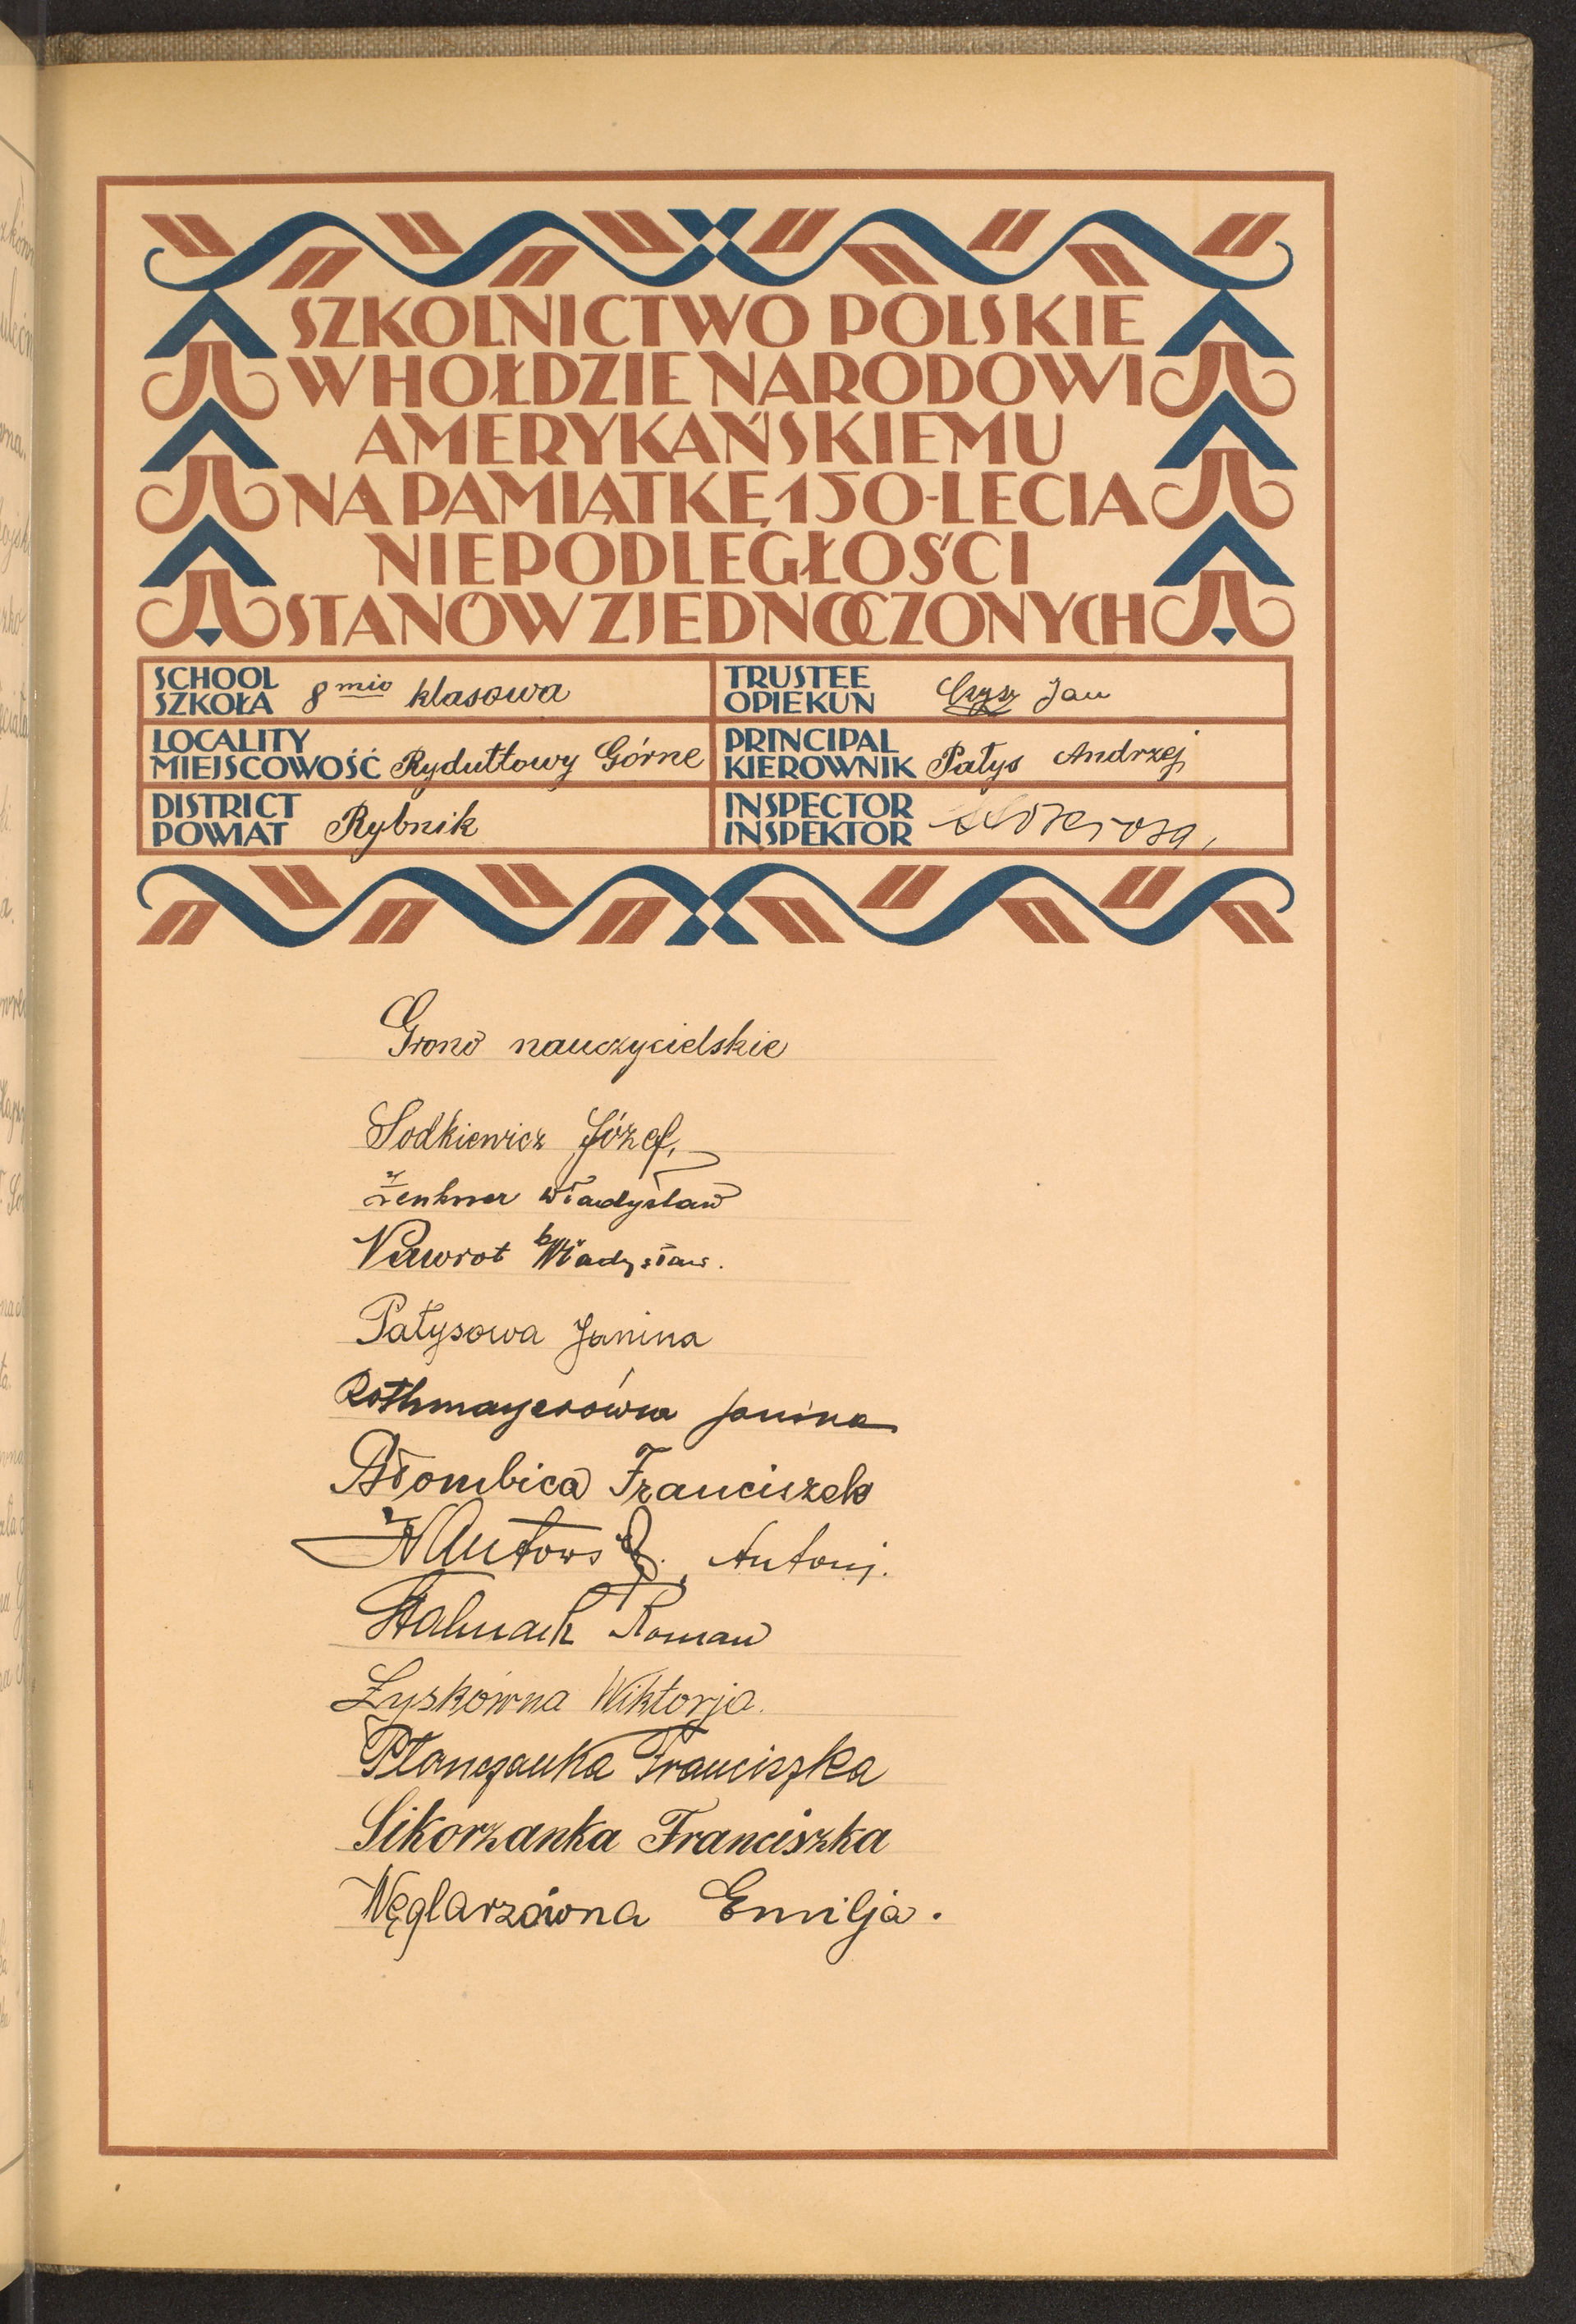 SZKOLNICTWO POLSKIE
W HOŁDZIE NARODOWI
AMERYKAŃSKIEMU
NA PAMIĄTKĘ 150-LECIA
NIEPODLEGŁOŚCI
STANÓW ZJEDNOCZONYCH
SCHOOL
SZKOŁA 8mio klasowa
TRUSTEE
OPIEKUN Jan
LOCALITY
MIEJSCOWOŚĆ Rydułtowy Górne
PRINCIPAL
KIEROWNIK Patys Andrzej
DISTRICT
POWIAT Rybnik
INSPECTOR
INSPEKTOR
Grono nauczycielskie
Sodkiewicz Józef,
Władysław
Nawrot Władysław.
Patysowa Janina
Rothmayerówna Janina
Franciszek
Antoni.
Roman
Łyskówna Wiktorja.
Franciszka
Sikorzanka Franciszka
Węglarzówna Emilja.